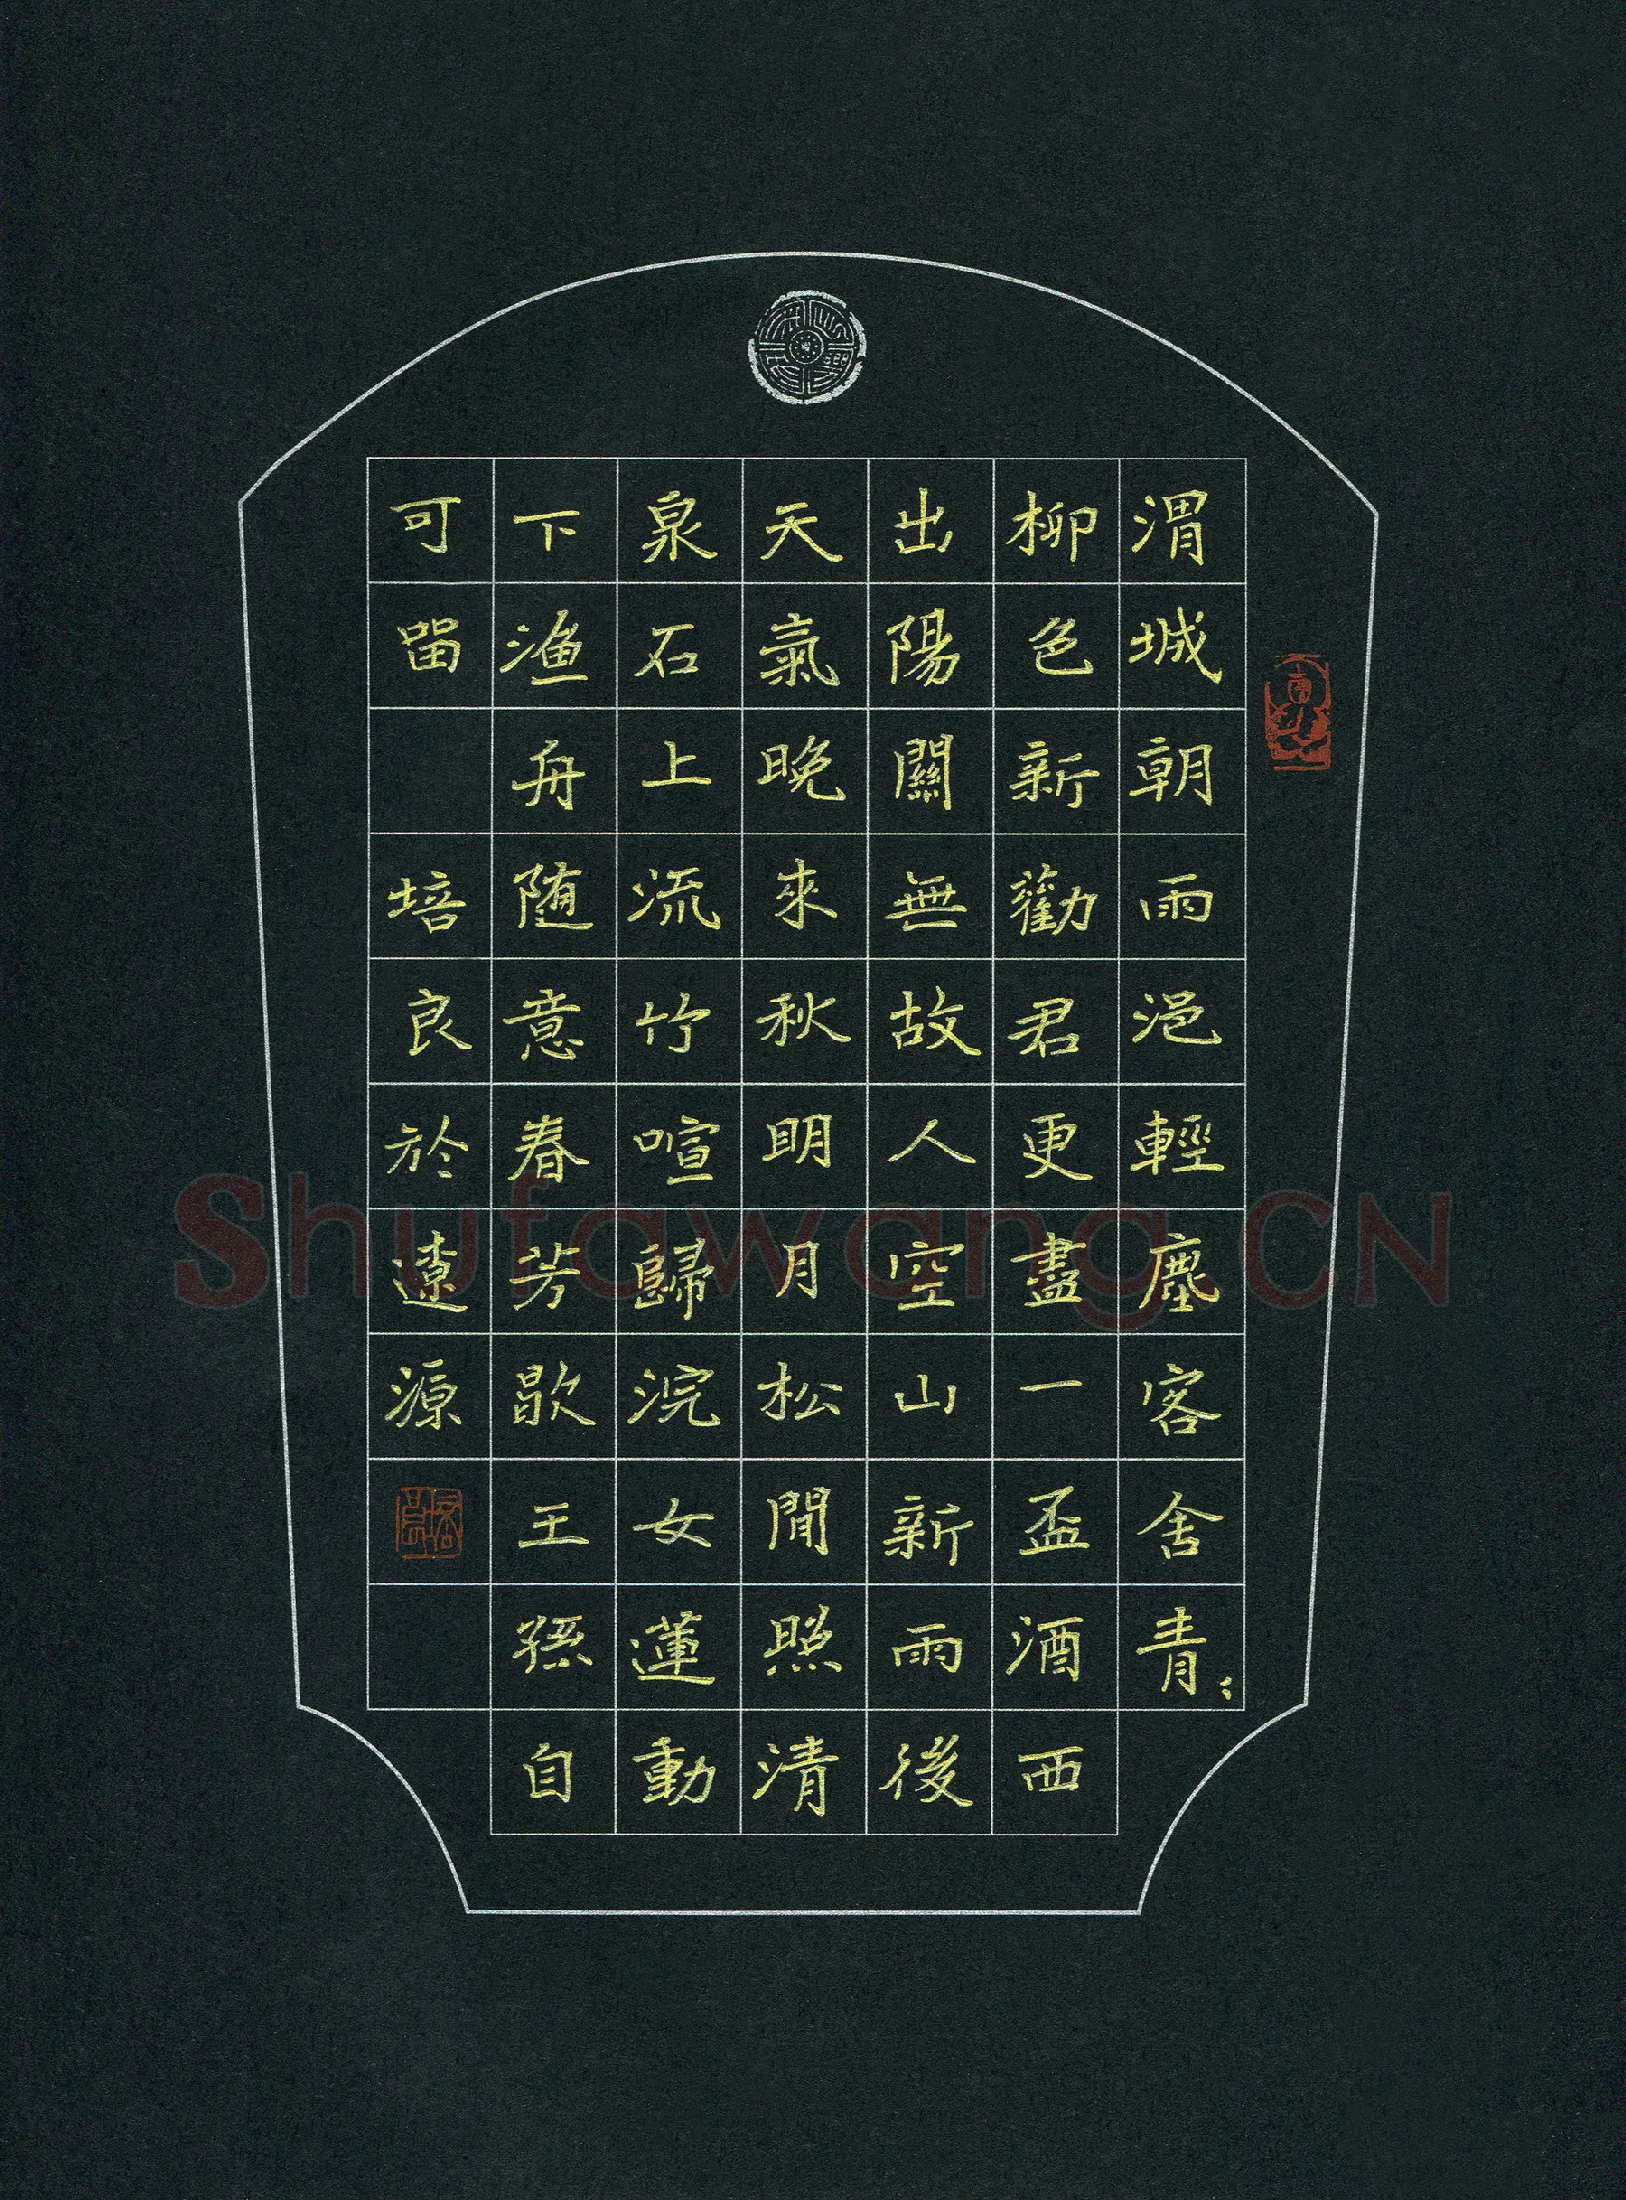 渭城朝雨浥輕塵客舍青〻
柳色新勸君更盡一盃酒西
出陽關無故人空山新雨後
天氣晚來秋明月松閒照清
泉石上流竹喧歸浣女蓮動
下渔舟随意春芳歇王孫自
可留
培良於遠源
Shufawang.CN